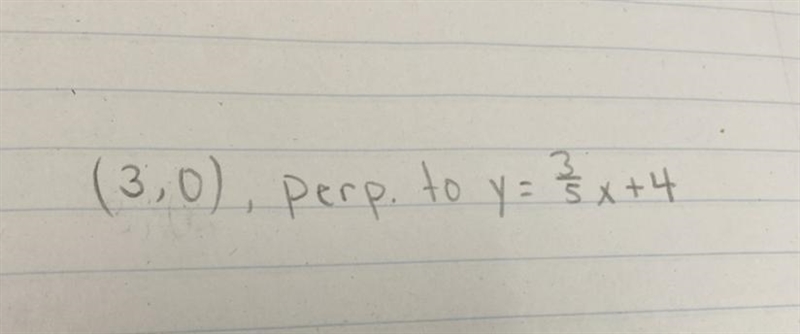 (3,0), perp. to y = 3/5 x + 4